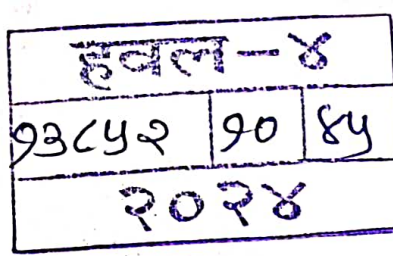 हवल-४
१३८५२ १० ४५
२०२४